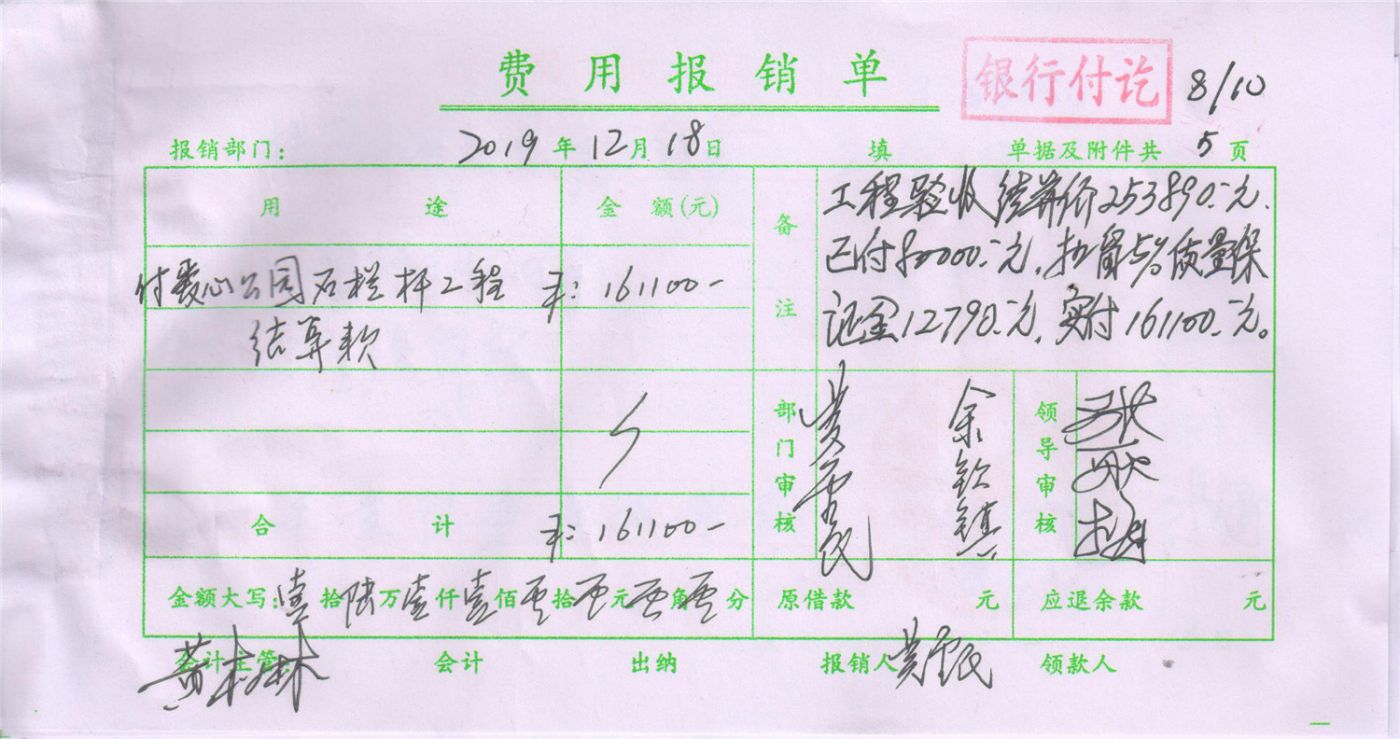 费用报销单
银行付讫
8/10
报销部门: 2019年12月18日 填 单据及附件共 5 页
用途 金额(元) 备注
工程验收结算价253890.元.
已付80000.元,扣留5%质量保
证金12790.元,实付161100.元。
付爱心公园石栏杆工程 161100-
结算款
部门审核 余钦镇 领导审核
合计 161100-
金额大写: 壹拾陆万壹仟壹佰零拾零元零角零分 原借款 元 应退余款 元
会计主管: 黄树林 会计 出纳 报销人 领款人